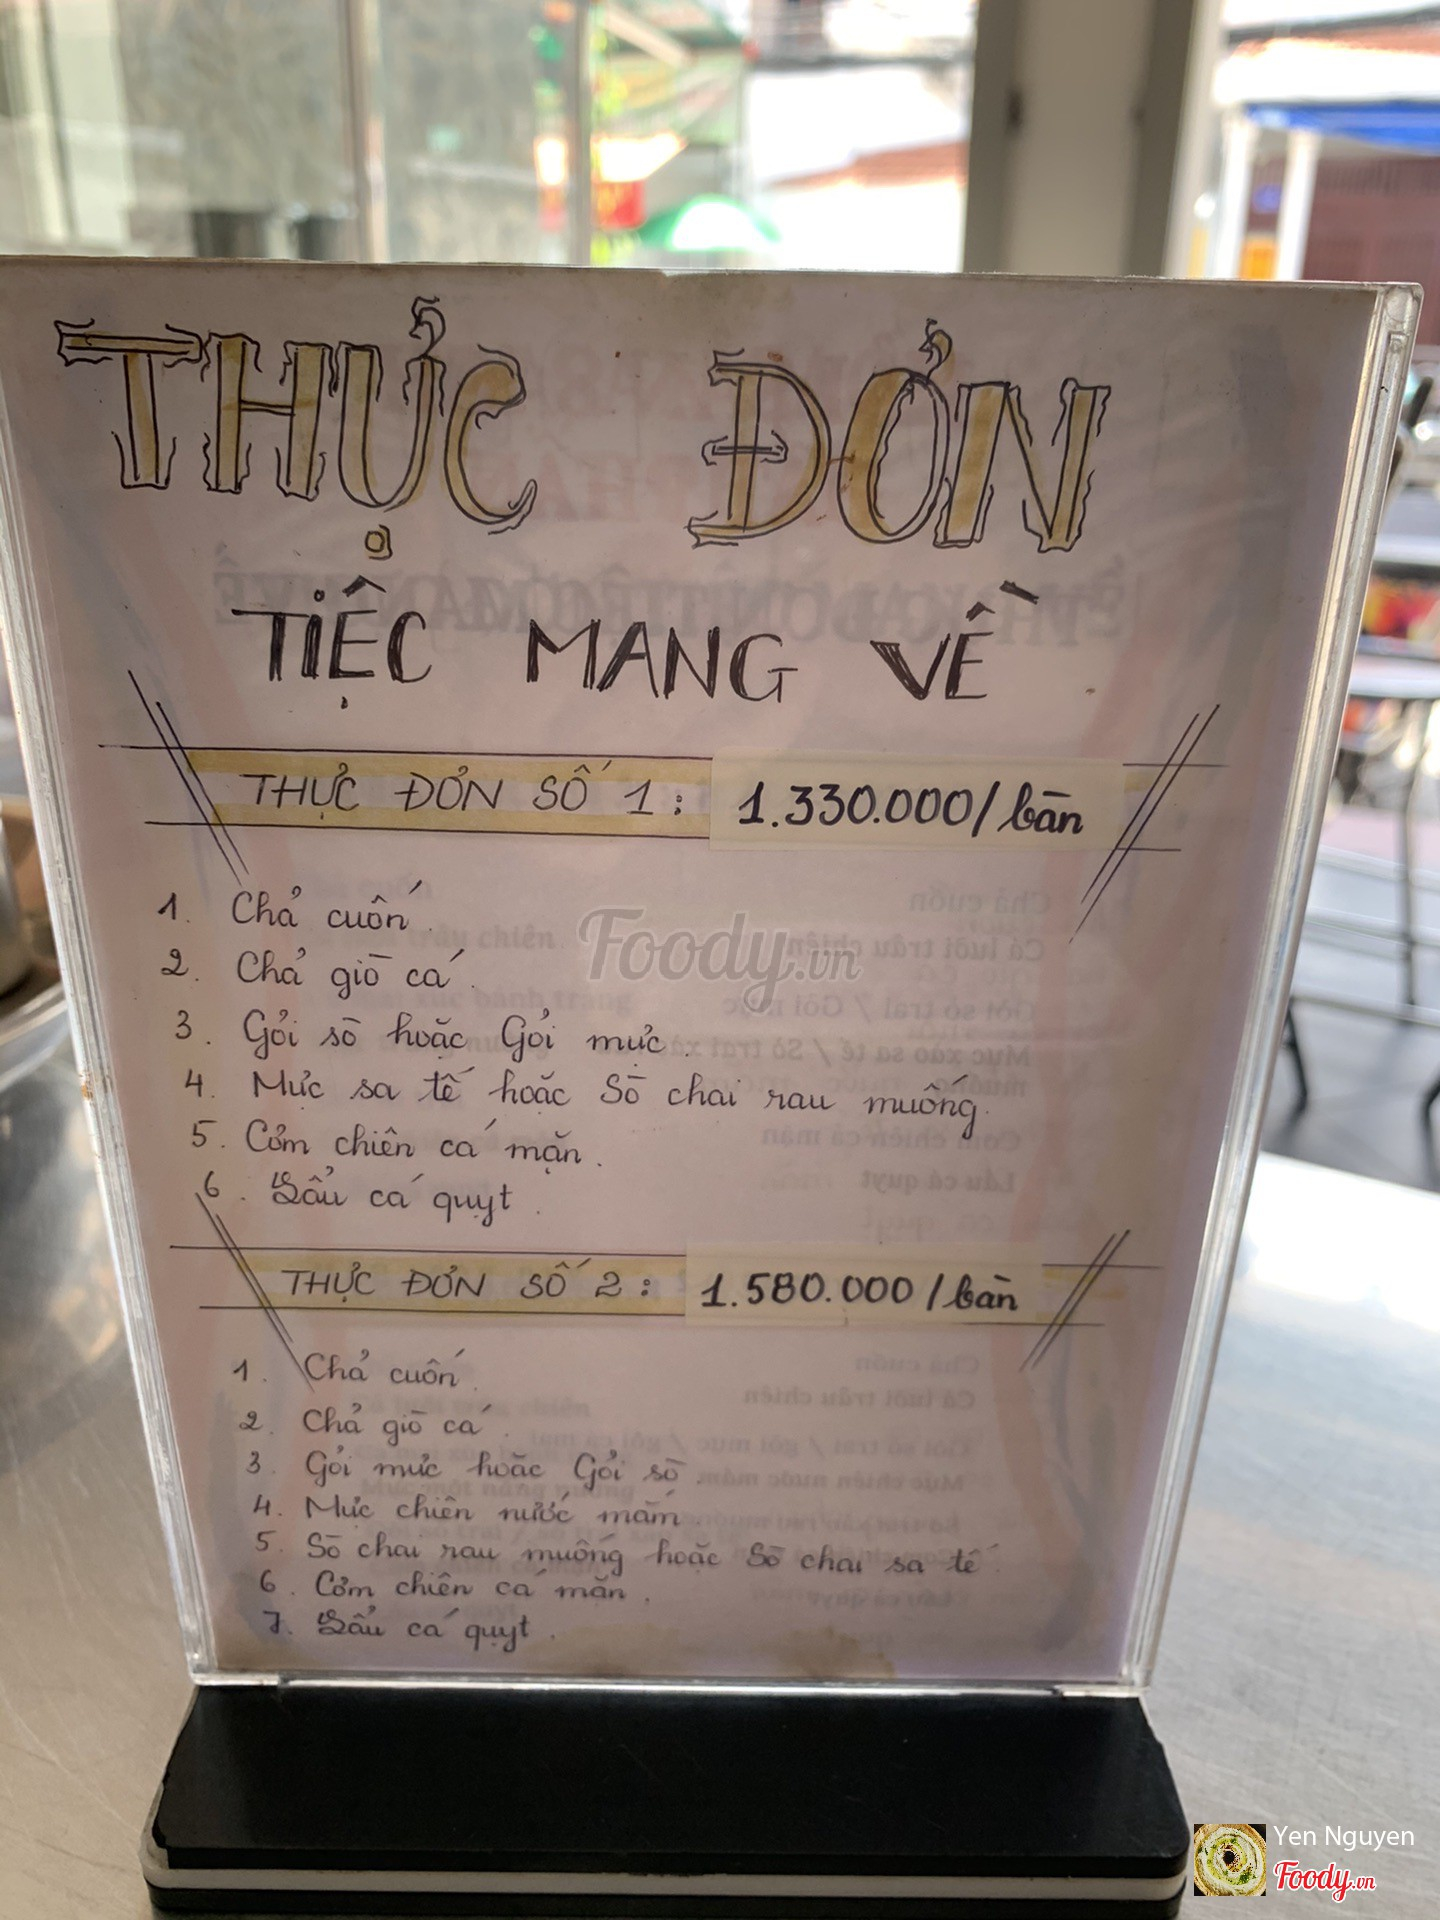 THỰC ĐƠN
TIỆC MANG VỀ
THỰC ĐƠN SỐ 1: 1.330.000/bàn
1. Chả cuốn.
2. Chả giò cá.
3. Gỏi sò hoặc Gỏi mực.
4. Mực sa tế hoặc Sò chai rau muống.
5. Cơm chiên cá mặn.
6. Lẩu cá quyt.
THỰC ĐƠN SỐ 2: 1.580.000/bàn
1. Chả cuốn.
2. Chả giò cá.
3. Gỏi mực hoặc Gỏi sò.
4. Mực chiên nước mắm
5. Sò chai rau muống hoặc Sò chai sa tế.
6. Cơm chiên cá mặn.
7. Lẩu cá quyt.
Foody.vn
Yen Nguyen
Foody.vn